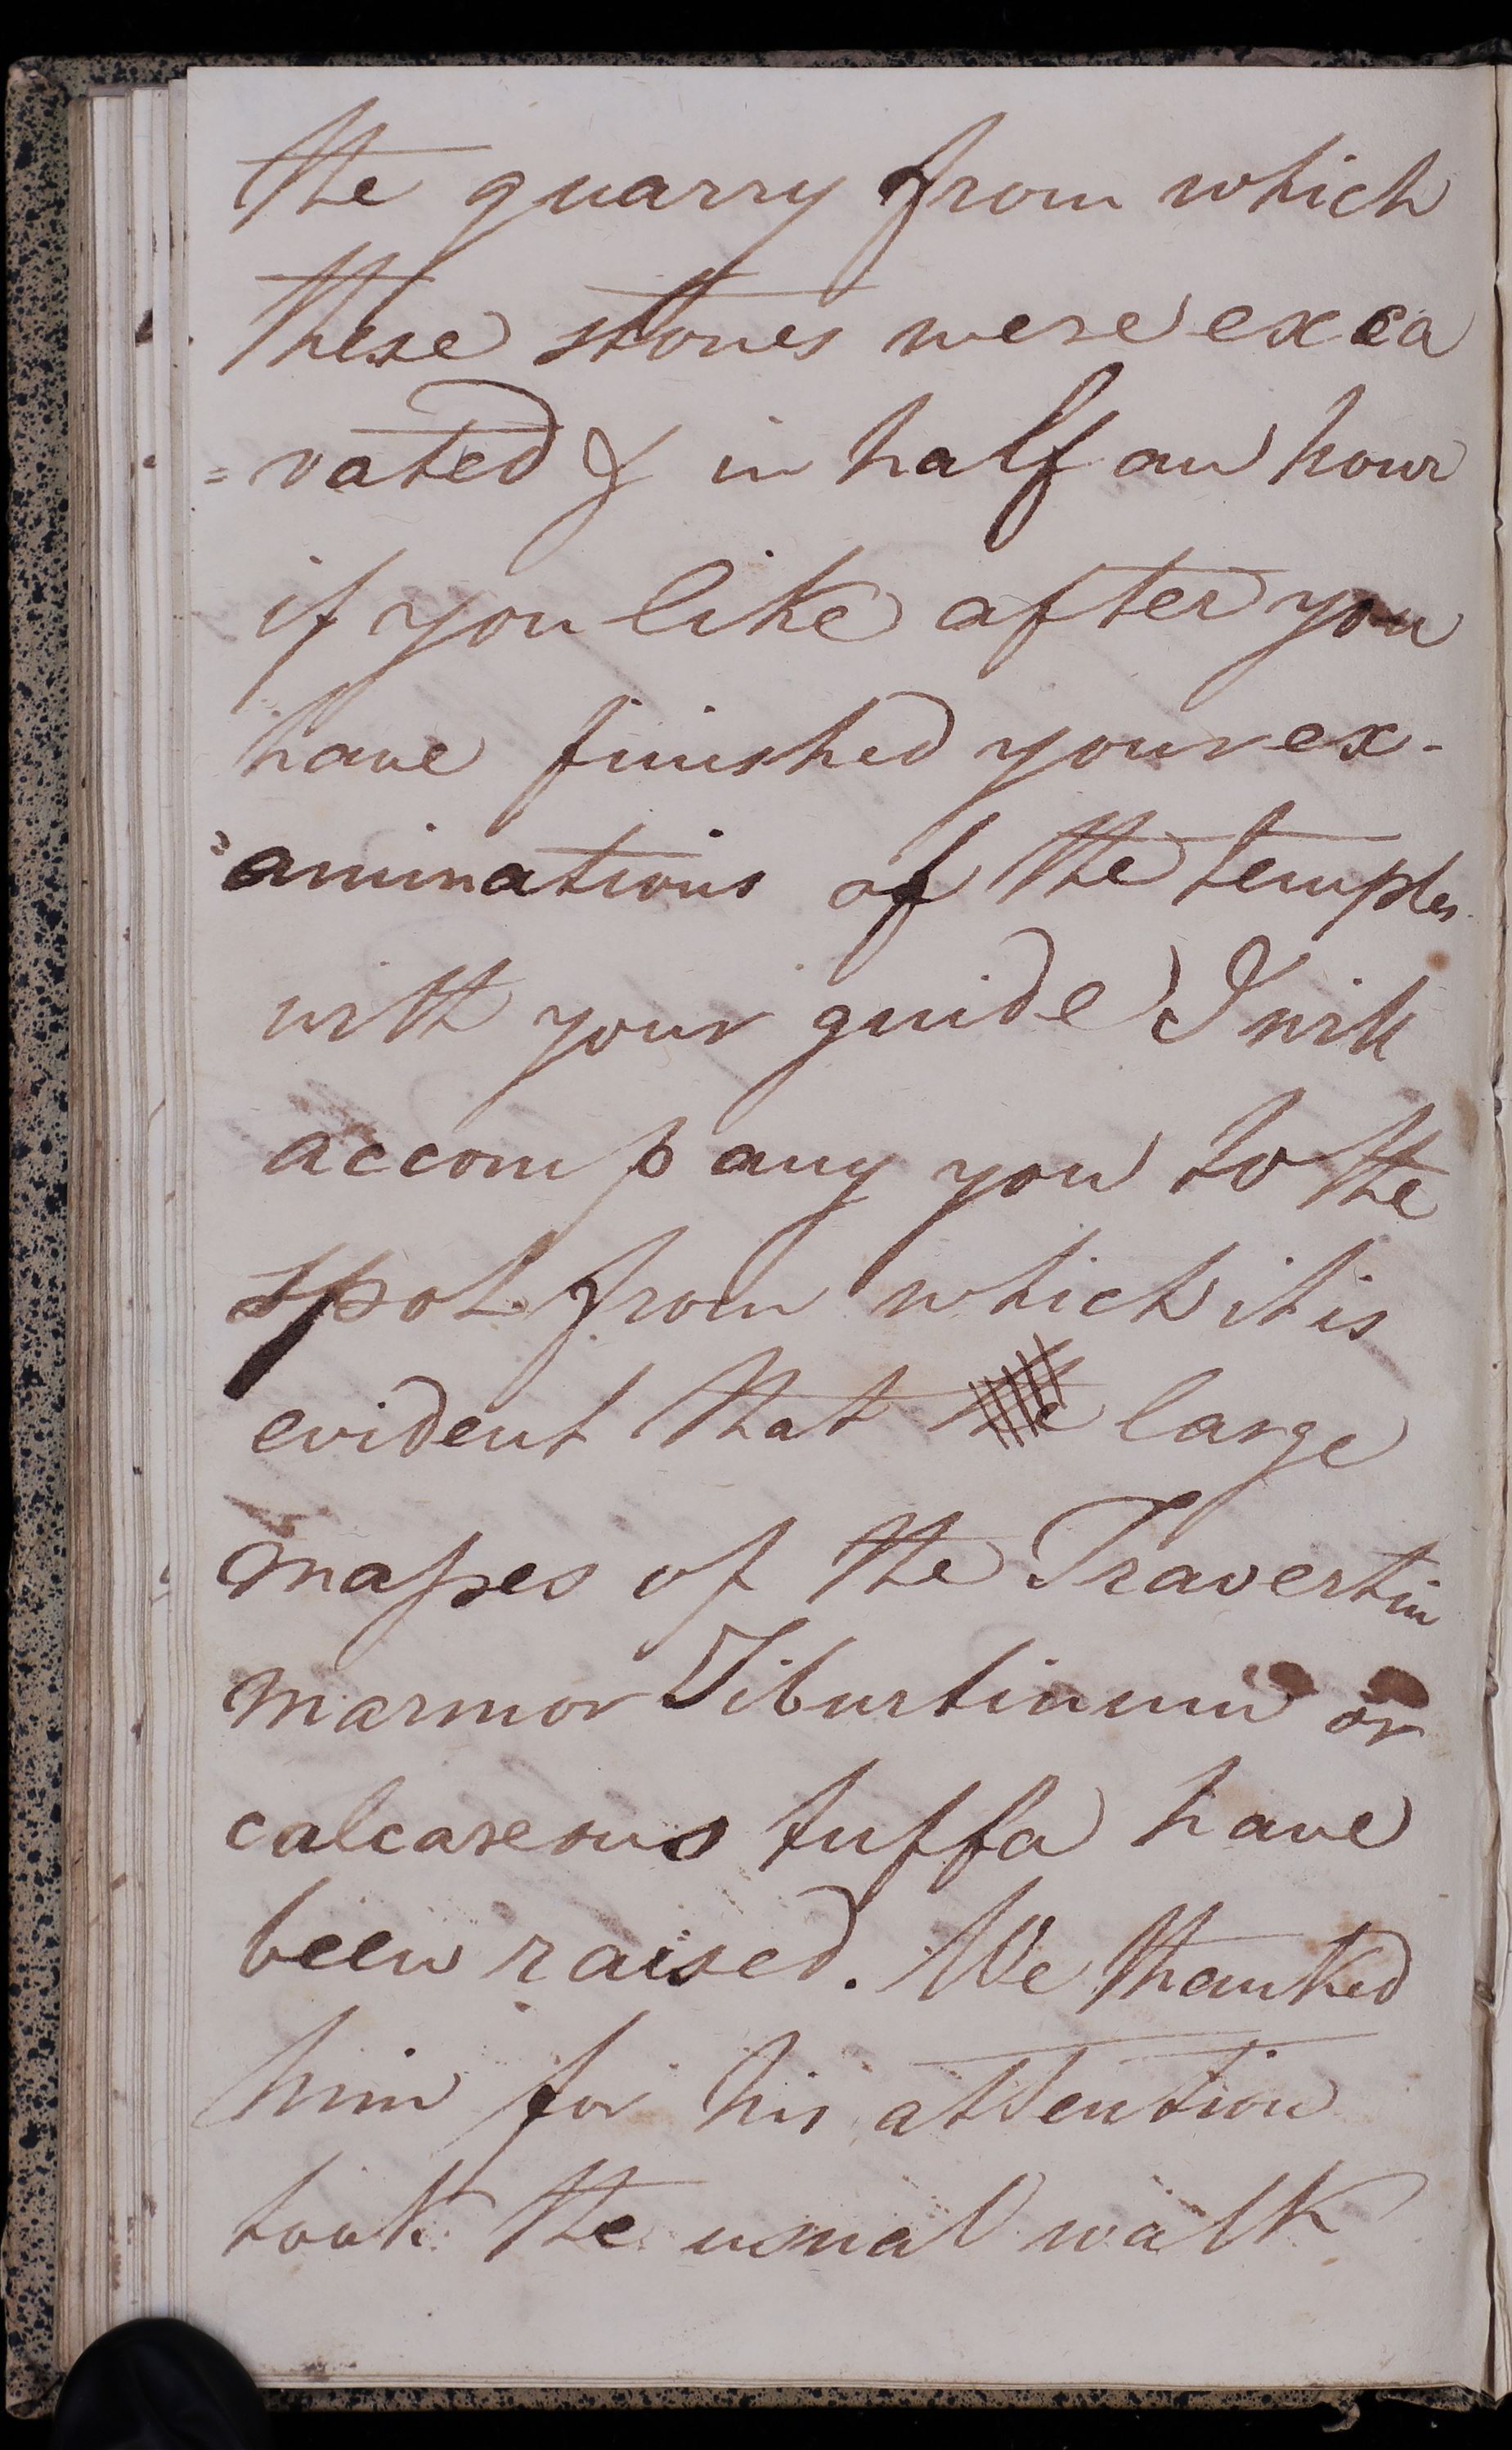 the quarry from which
these stones were exca
=vated & in half an hour
if you like after you
have finished your ex-
=aminations of the temples
with your guide I will
accompany you to the
spot from which it is
evident that the large
masses of the Travertin
marmor Tiburtinum or
calcareous tuffa have
been raised. We thanked
him for his attention
took the usual walk